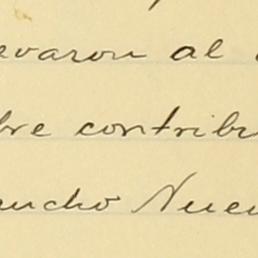 evaron al
bre contribu
ancho Nuev